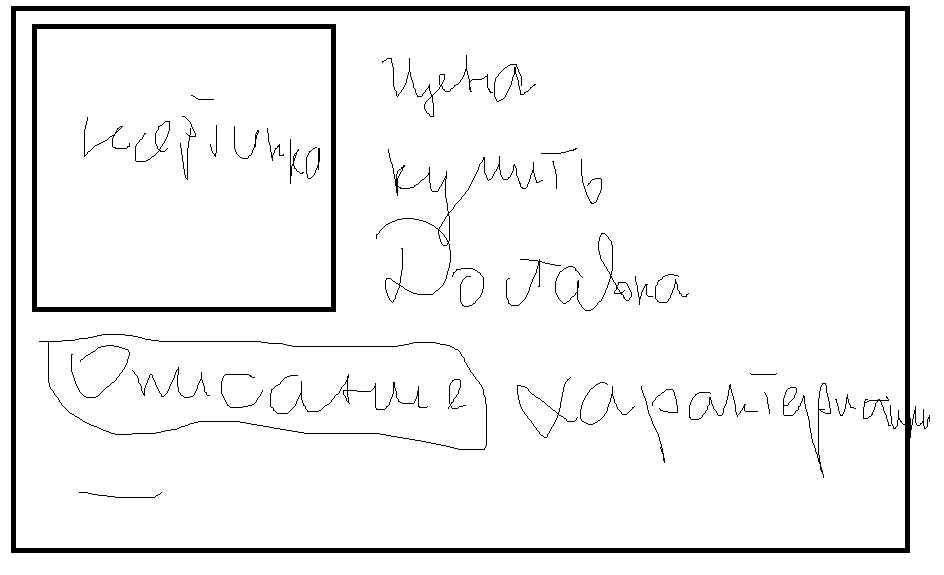 картинка
цена
купить
Доставка
Описание характеристики